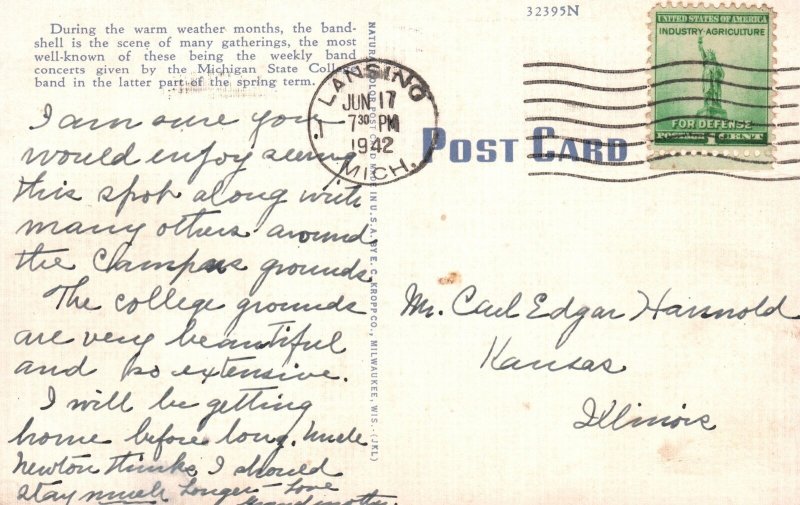 During the warm weather months, the band-
shell is the scene of many gatherings, the most
well-known of these being the weekly band
concerts given by the Michigan State College
band in the latter part of the spring term.
I am sure you
would enjoy seeing
this spot along with
many others around
the Campus grounds
The college grounds
are very beautiful
and so extensive.
I will be getting
home before long. Uncle
Newton thinks I should
stay much longer - Love
Grandmother.
NATURAL COLOR POST CARD MADE IN U.S.A. BY E. C. KROPP CO., MILWAUKEE, WIS. (JKL)
LANSING
JUN 17
7 30 PM
1942
MICH.
1
32395N
POST CARD
UNITED STATES OF AMERICA
INDUSTRY-AGRICULTURE
FOR DEFENSE
POSTAGE 1 CENT
Mr. Carl Edgar Harnold
Kansas
Illinois